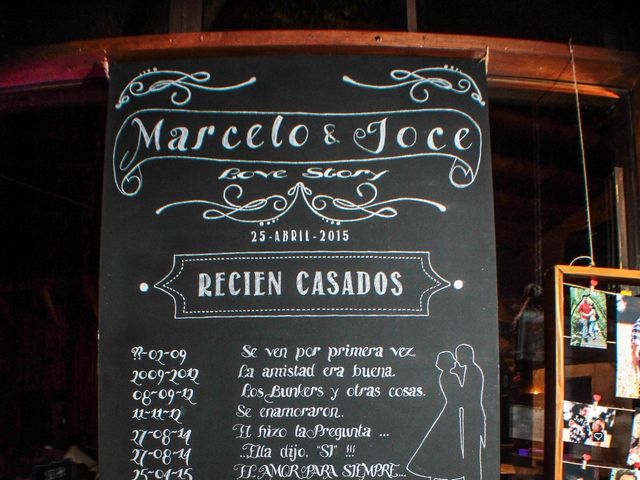 Marcelo & Joce
Love Story
25-ABRIL-2015
RECIEN CASADOS
??-02-09 Se ven por primera vez.
2009-2012 La amistad era buena.
08-09-12 Los Bunkers y otras cosas.
11-11-12 Se enamoraron..
27-08-14 El hizo la Pregunta ...
27-08-14 ..Ella dijo, "SI" !!!
25-04-15 EL AMOR PARA SIEMPRE...